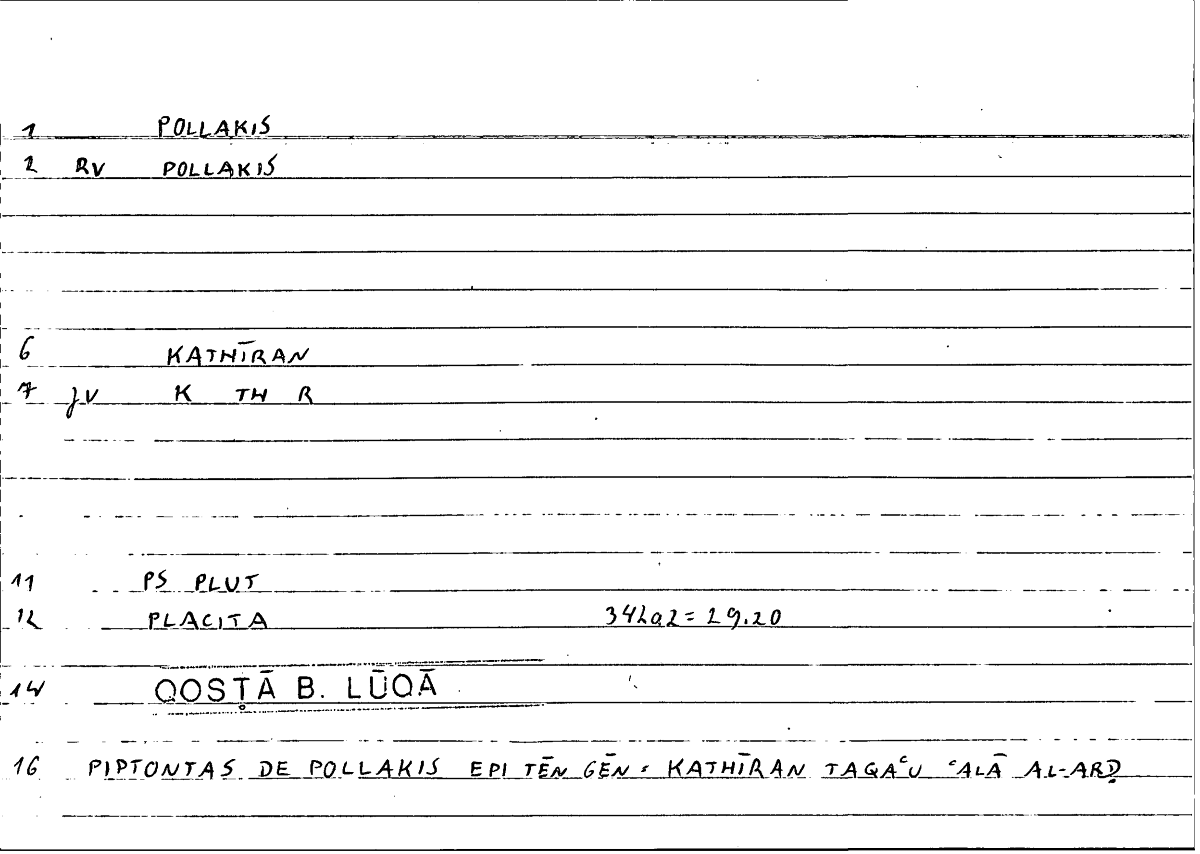 1 POLLAKIS
2 RV POLLAKIS
6 KATHĪRAN
7 JV K TH R
11 PS PLUT
12 PLACITA 342a2 = 29.20
14 QOSṬĀ B. LŪQĀ
16 PIPTONTAS DE POLLAKIS EPI TĒN GĒN = KATHĪRAN TAQAʿU ʿALĀ AL-ARḌ